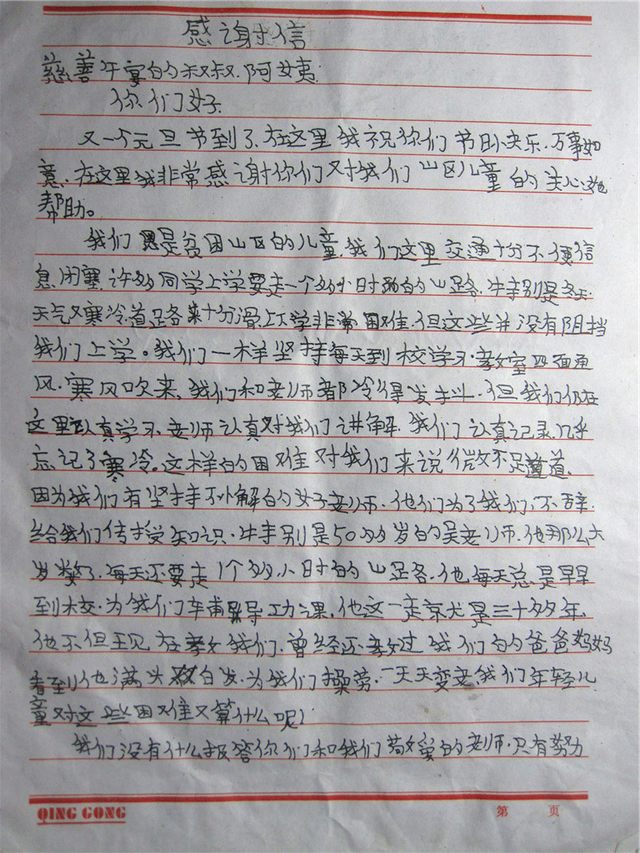 感谢信
慈善午宴的叔叔.阿姨:
你们好.
又一个元旦节到了.在这里我祝你们节日快乐.万事如
意.在这里我非常感谢你们对我们山区儿童的关心
帮助。
我们是贫困山区的儿童.我们这里交通十分不便信
息闭塞.许多同学上学要走一个多小时的山路.特别是冬天.
天气又寒冷道路来十分滑.上学非常困难.但这些并没有阻挡
我们上学。我们一样坚持每天到校学习.教室四面通
风.寒风吹来.我们和老师都冷得发抖.但我们仍在
这里认真学习.老师认真对我们讲解.我们认真记录.几乎
忘记了寒冷。这样的困难对我们来说微不足道.
因为我们有坚持不懈的好老师.他们为了我们.不辞
给我们传授知识.特别是50多岁的吴老师.他那么大
岁数了.每天还要走1个多小时的山路.他每天总是早早
到校.为我们辅导功课.他这一走就是三十多年.
他不但现在教我们.曾经还教过我们的爸爸妈妈
看到他满头白发.为我们操劳.一天天变老我们年轻儿
童对这些困难又算什么呢!
我们没有什么报答你们和我们的老师.只有努力
QING GONG
第 页